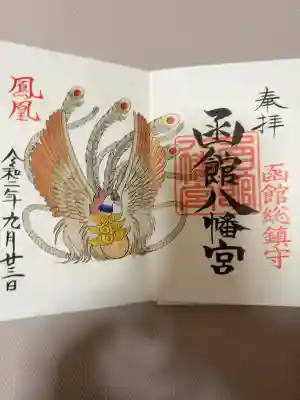 奉拝
函館総鎮守
函館八幡宮
鳳凰
令和二年九月廿三日